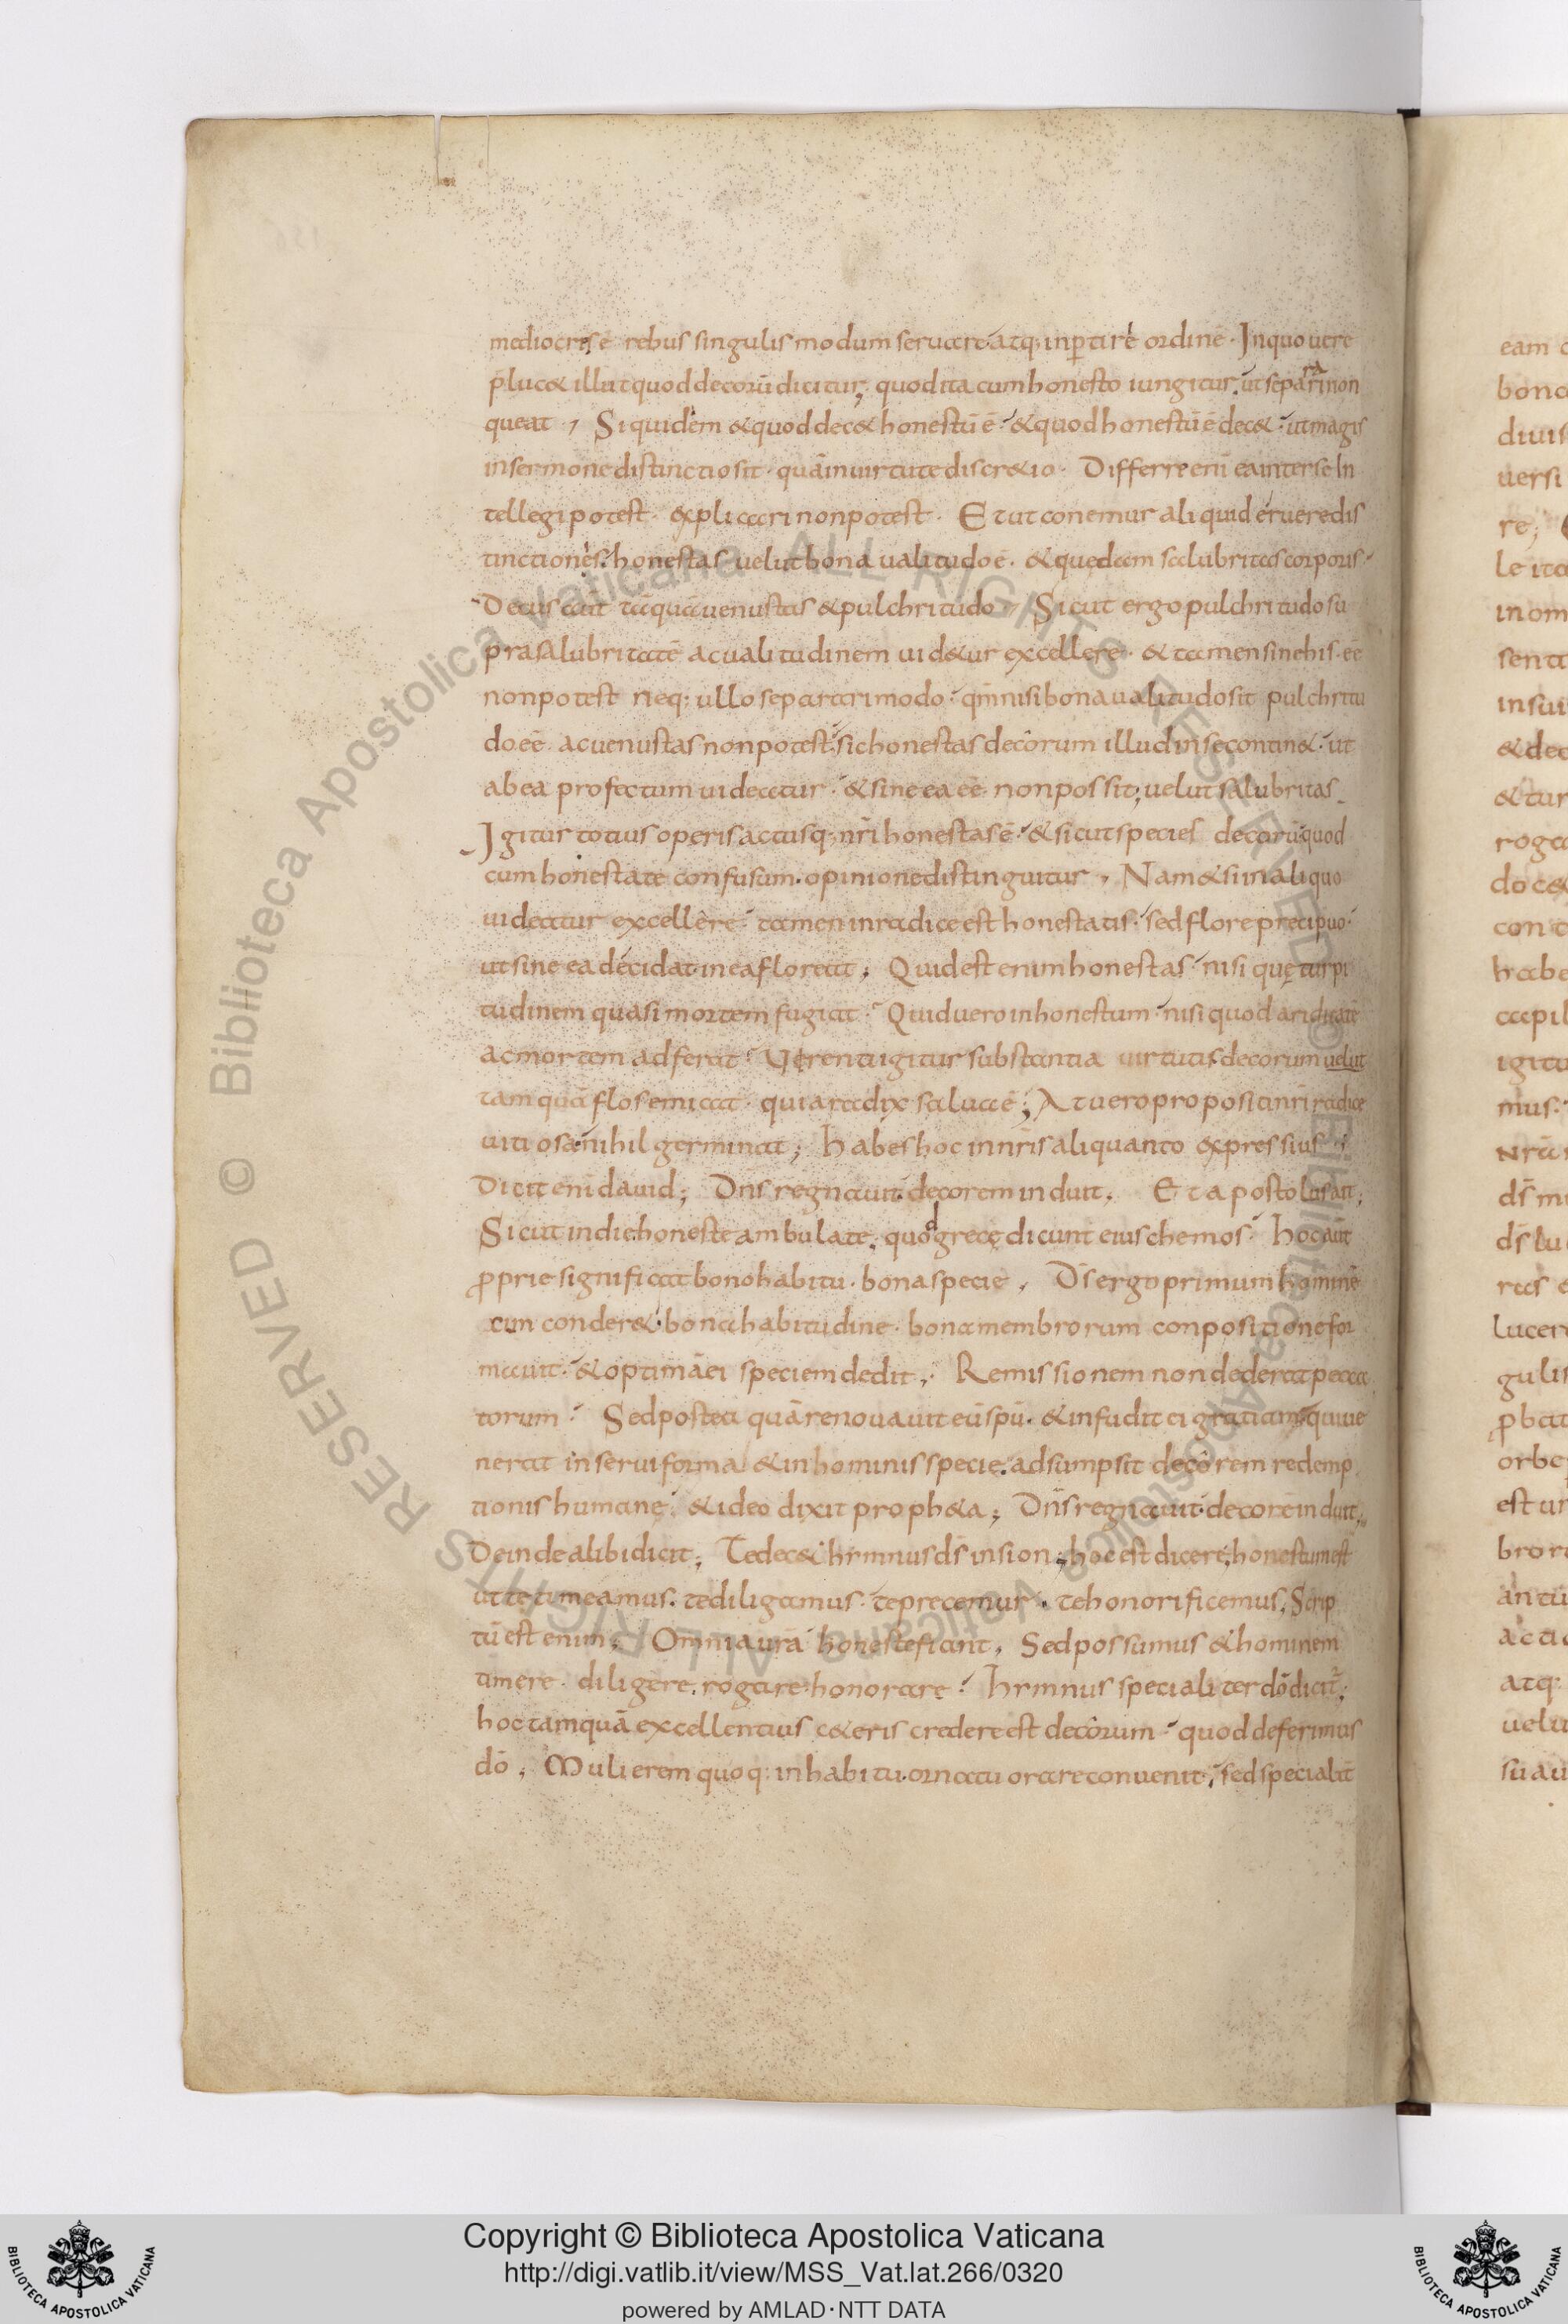 mediocris ē rebus singulis modum seruare atq; inp̱tire ordinē · In quo uere
pluc& illut quod decorū dicitur; quod ita cum honesto iungitur. ut separari non
queat, Siquidem & quod dec& honestū ē · & quod honestū ē dec& · ut magis
in sermone distinctio sit · quā in uirtute discr&io · Differre enī ea inter se In
tellegi potest · explicari non potest · Et ut conemur aliquid eruere dis
tinctiones. honestas uelut bona ualitudo ē · & quedam salubritas corporis ·
Decus aūt tāquā uenustas & pulchritudo, Sicut ergo pulchritudo su
pra salubritatē ac ualitudinem uid&ur excellere · & tamen sine his · eē
non potest neq; ullo separari modo · qm̄ nisi bona ualitudo sit pulchritu
do eē ac uenustas non potest; sic honestas decorum illud in se contin& · ut
ab ea profectum uideatur · & sine ea eē non possit; uelut salubritas
Igitur totius operis actusq; nr̄i honestas ē · & sicut species decorū quod
cum honestate confusum · opinione distinguitur, Nam & si in aliquo
uideatur excellere · tamen in radice est honestatis · sed flore precipuo ·
ut sine ea decidat in ea floreat, Quid est enim honestas · nisi quę turpi
tudinem quasi mortem fugiat · Quid uero inhonestum · nisi quod ariditatē
ac mortem adferat · Uirenti igitur substantia uirtutis decorum uelut
tamquā flos emicat · quia radix salua ē; At uero propositi nr̄i radice
uitiosa nihil germinat; habes hoc in nr̄is aliquanto expressius
Dicit enī dauid; Dn̄s regnauit. decorem induit, Et apostolus ait;
Sicut in die honeste ambulate, quod grece dicunt euschemos · hoc aūt
p̱prie significat bono habitu · bona specie, Ds̄ ergo primum hominē
cum conder& · bona habitudine · bona membrorum conpositione for
mauit · & optimā ei speciem dedit, Remissionem non dederat pecca
torum · Sed postea quā renouauit eū spū · & infudit ei gratiam qui ue
nerat in serui forma & in hominis specie. adsumpsit decorem redemp
tionis humane · & ideo dixit proph&a; Dn̄s regnauit · decorē induit,
Deinde alibi dicit; Te dec& hrmnus ds̄ in sion; hoc est dicere; honestum est
ut te timeamus · te diligamus · te precemur · te honorificemus, Scrip
tū est enim; Omnia urā honeste fiant, Sed possumus & hominem
timere · diligere. rogare · honorare · hrmnus specialiter dō dicit̄;
hoc tamquā excellentius c&eris credere est decorum · quod deferimus
dō; Mulierem quoq; in habitu · ornatu orare conuenit, sed specialit̄